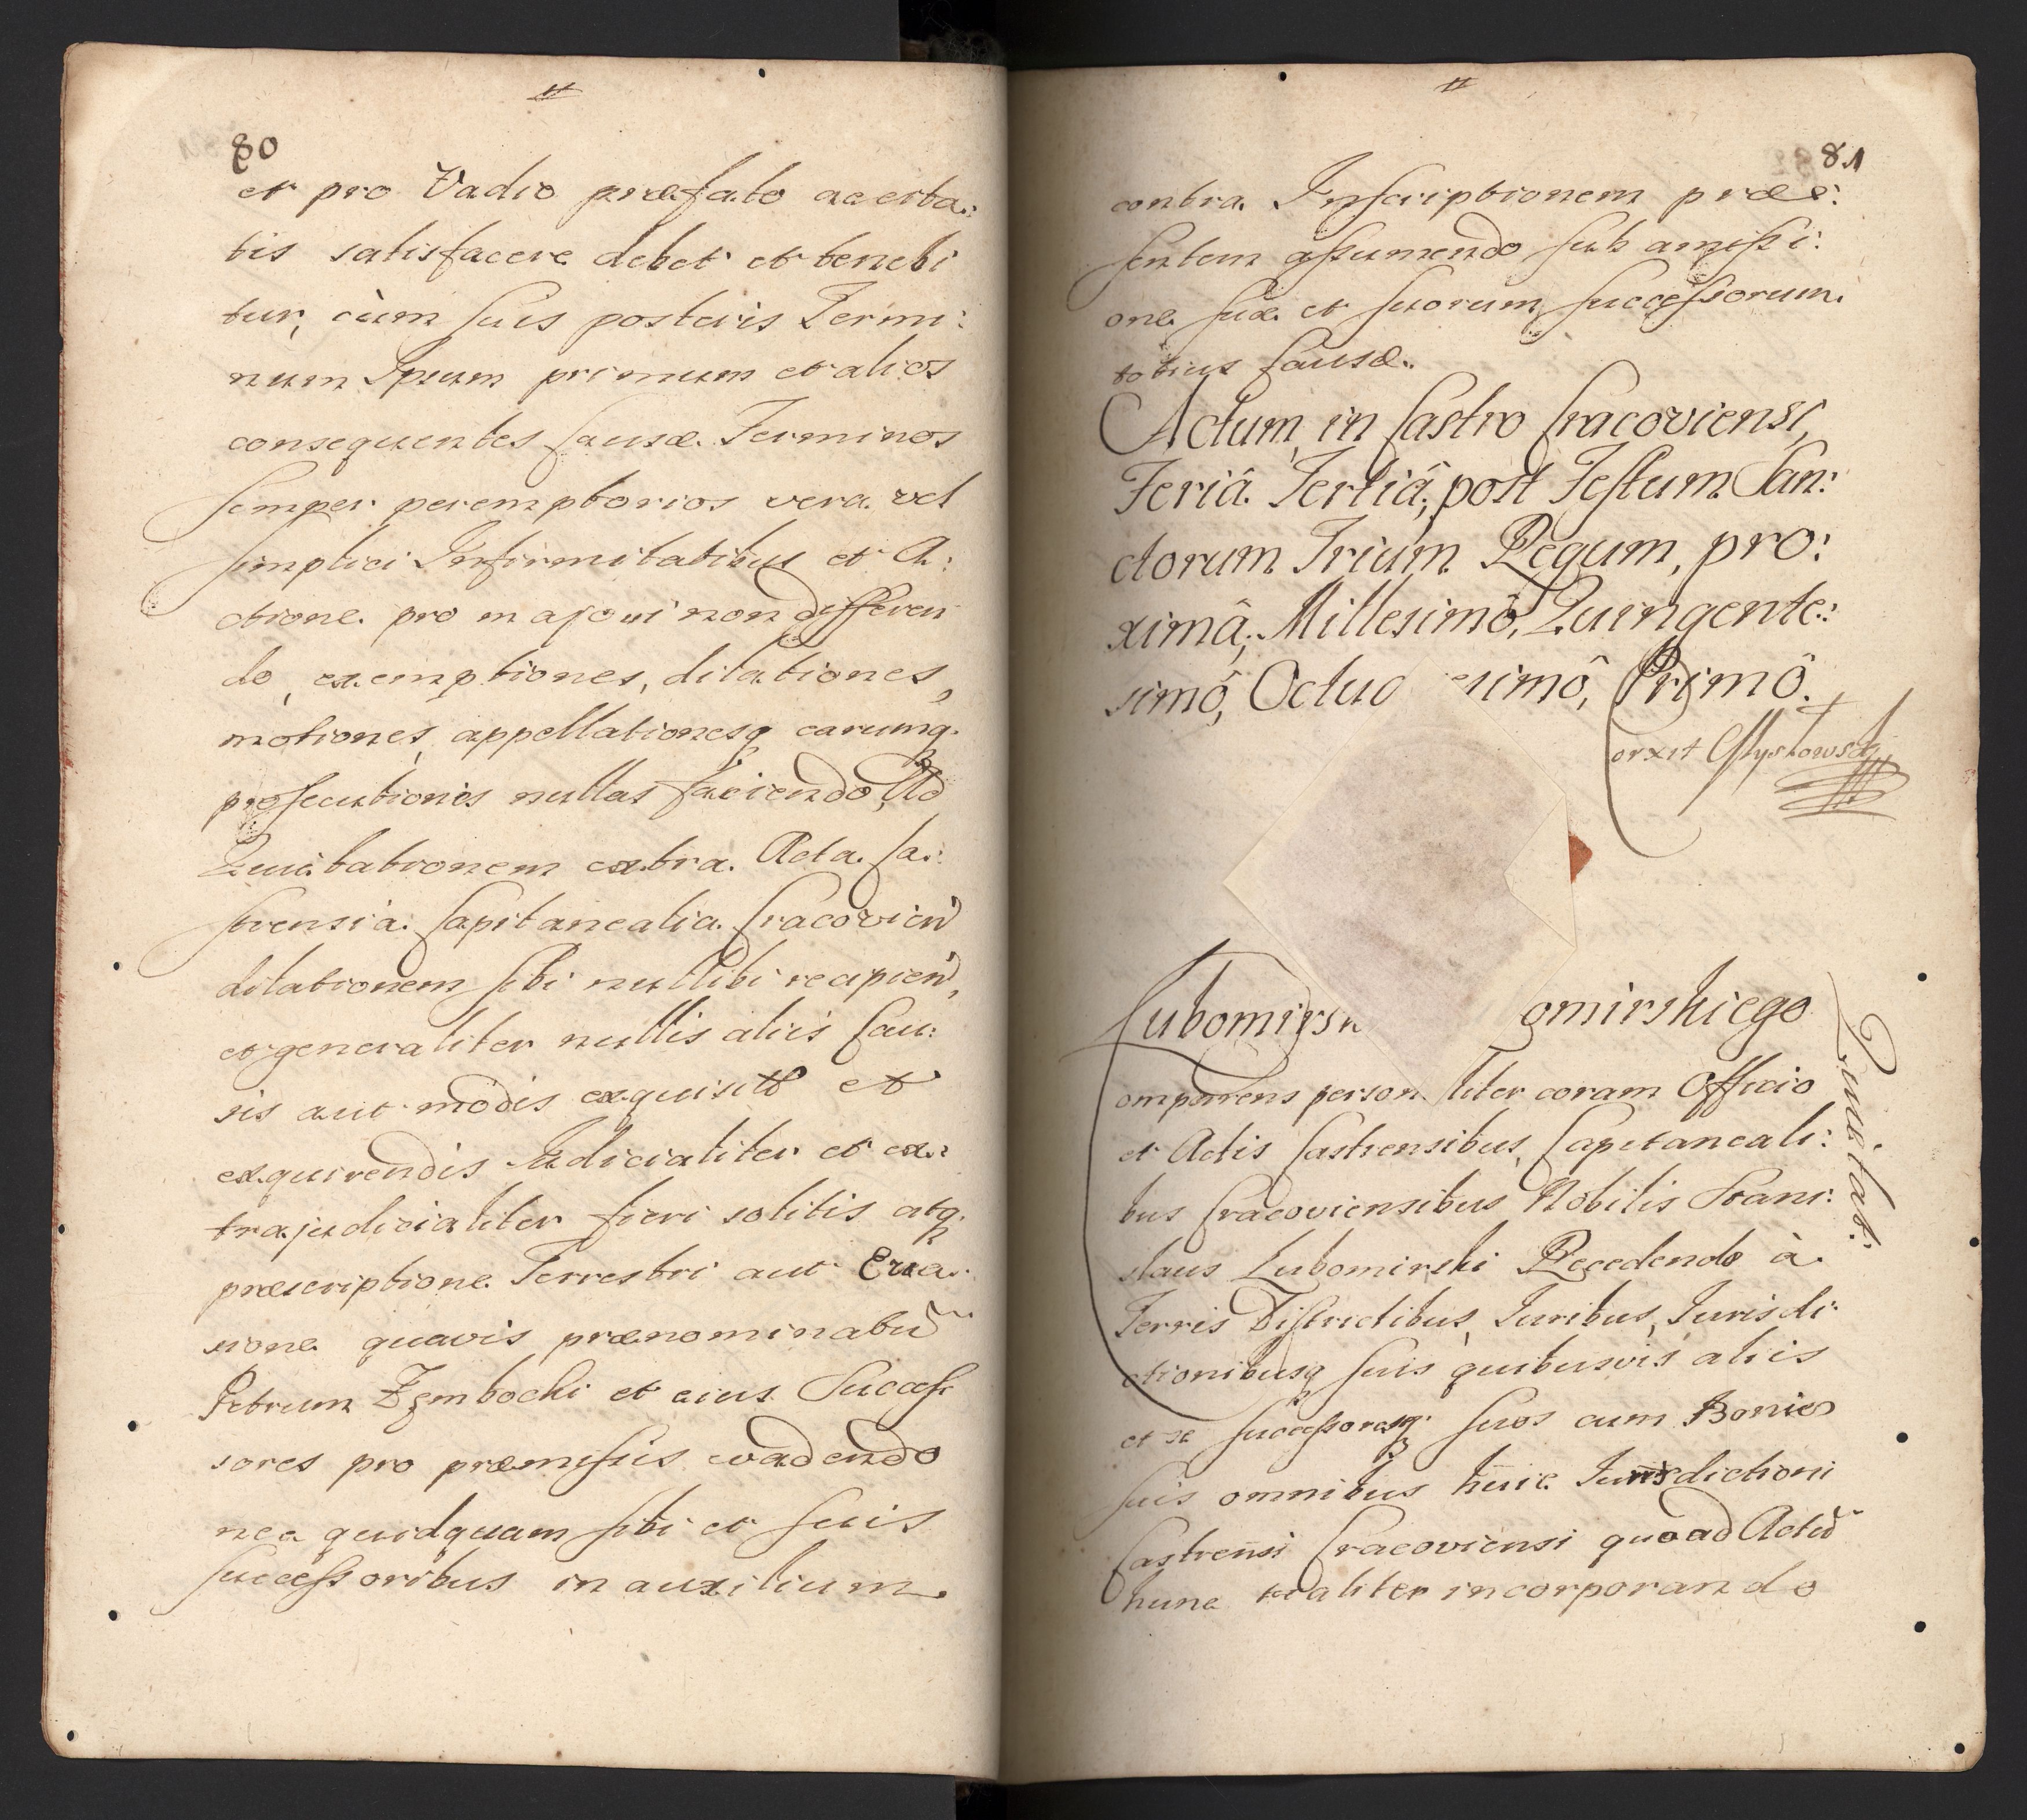 80
et pro Vadio præfato acerba:
tis satisfacere debet et tenebi
tur, cùm suis posteris Termi:
num Ipsum primum et alios
consequentes Causæ Terminos
semper peremptorios vera vel
simplici Infirmitatibus et A:
ctione pro majori non differen
do, exemptiones, dilationes,
motiones, appellationesq earumq.
prosecutiones nullas faciendo, Ad
Quietationem extra Acta Ca:
strensia Capitanealia Cracovien
dilationem sibi nullibi recipien,
et generaliter nullis aliis Cau:
sis aut modis exquisitis et
exquirendis Iudicialiter et ex:
trajudicialiter fieri solitis atq.
præscriptione Terrestri aut Eva:
sione quavis prænominatũ
Petrum Zembocki et eius Succes
sores pro præmissis evadendo
nec quidquam sibi et suis
successoribus in auxilium
81
contra Inscriptionem præ:
sentem assumendo sub amissi:
one suæ et suorum successorum
totius Causæ.
Actum in Castro Cracoviensi,
Feriâ Tertiâ, post Festum San:
ctorum Trium Regum, pro:
ximâ, Millesimô, Quingente:
simô, Octuo esimô, Primô.
Lubomirsk omirskiego
Quietat:
omparens person liter coram Officio
et Actis Castrensibus, Capitaneali:
bus Cracoviensibus Nobilis Stani:
slaus Lubomirski Recedendo à
Terris Districtibus, Iuribus, Iurisdi:
ctionibusq suis quibusvis aliis
et se successoresq. suos cum Bonis
suis omnibus huic Iurisdictioni
Castrensi Cracoviensi quoad Actũ
hunc totaliter incorporando